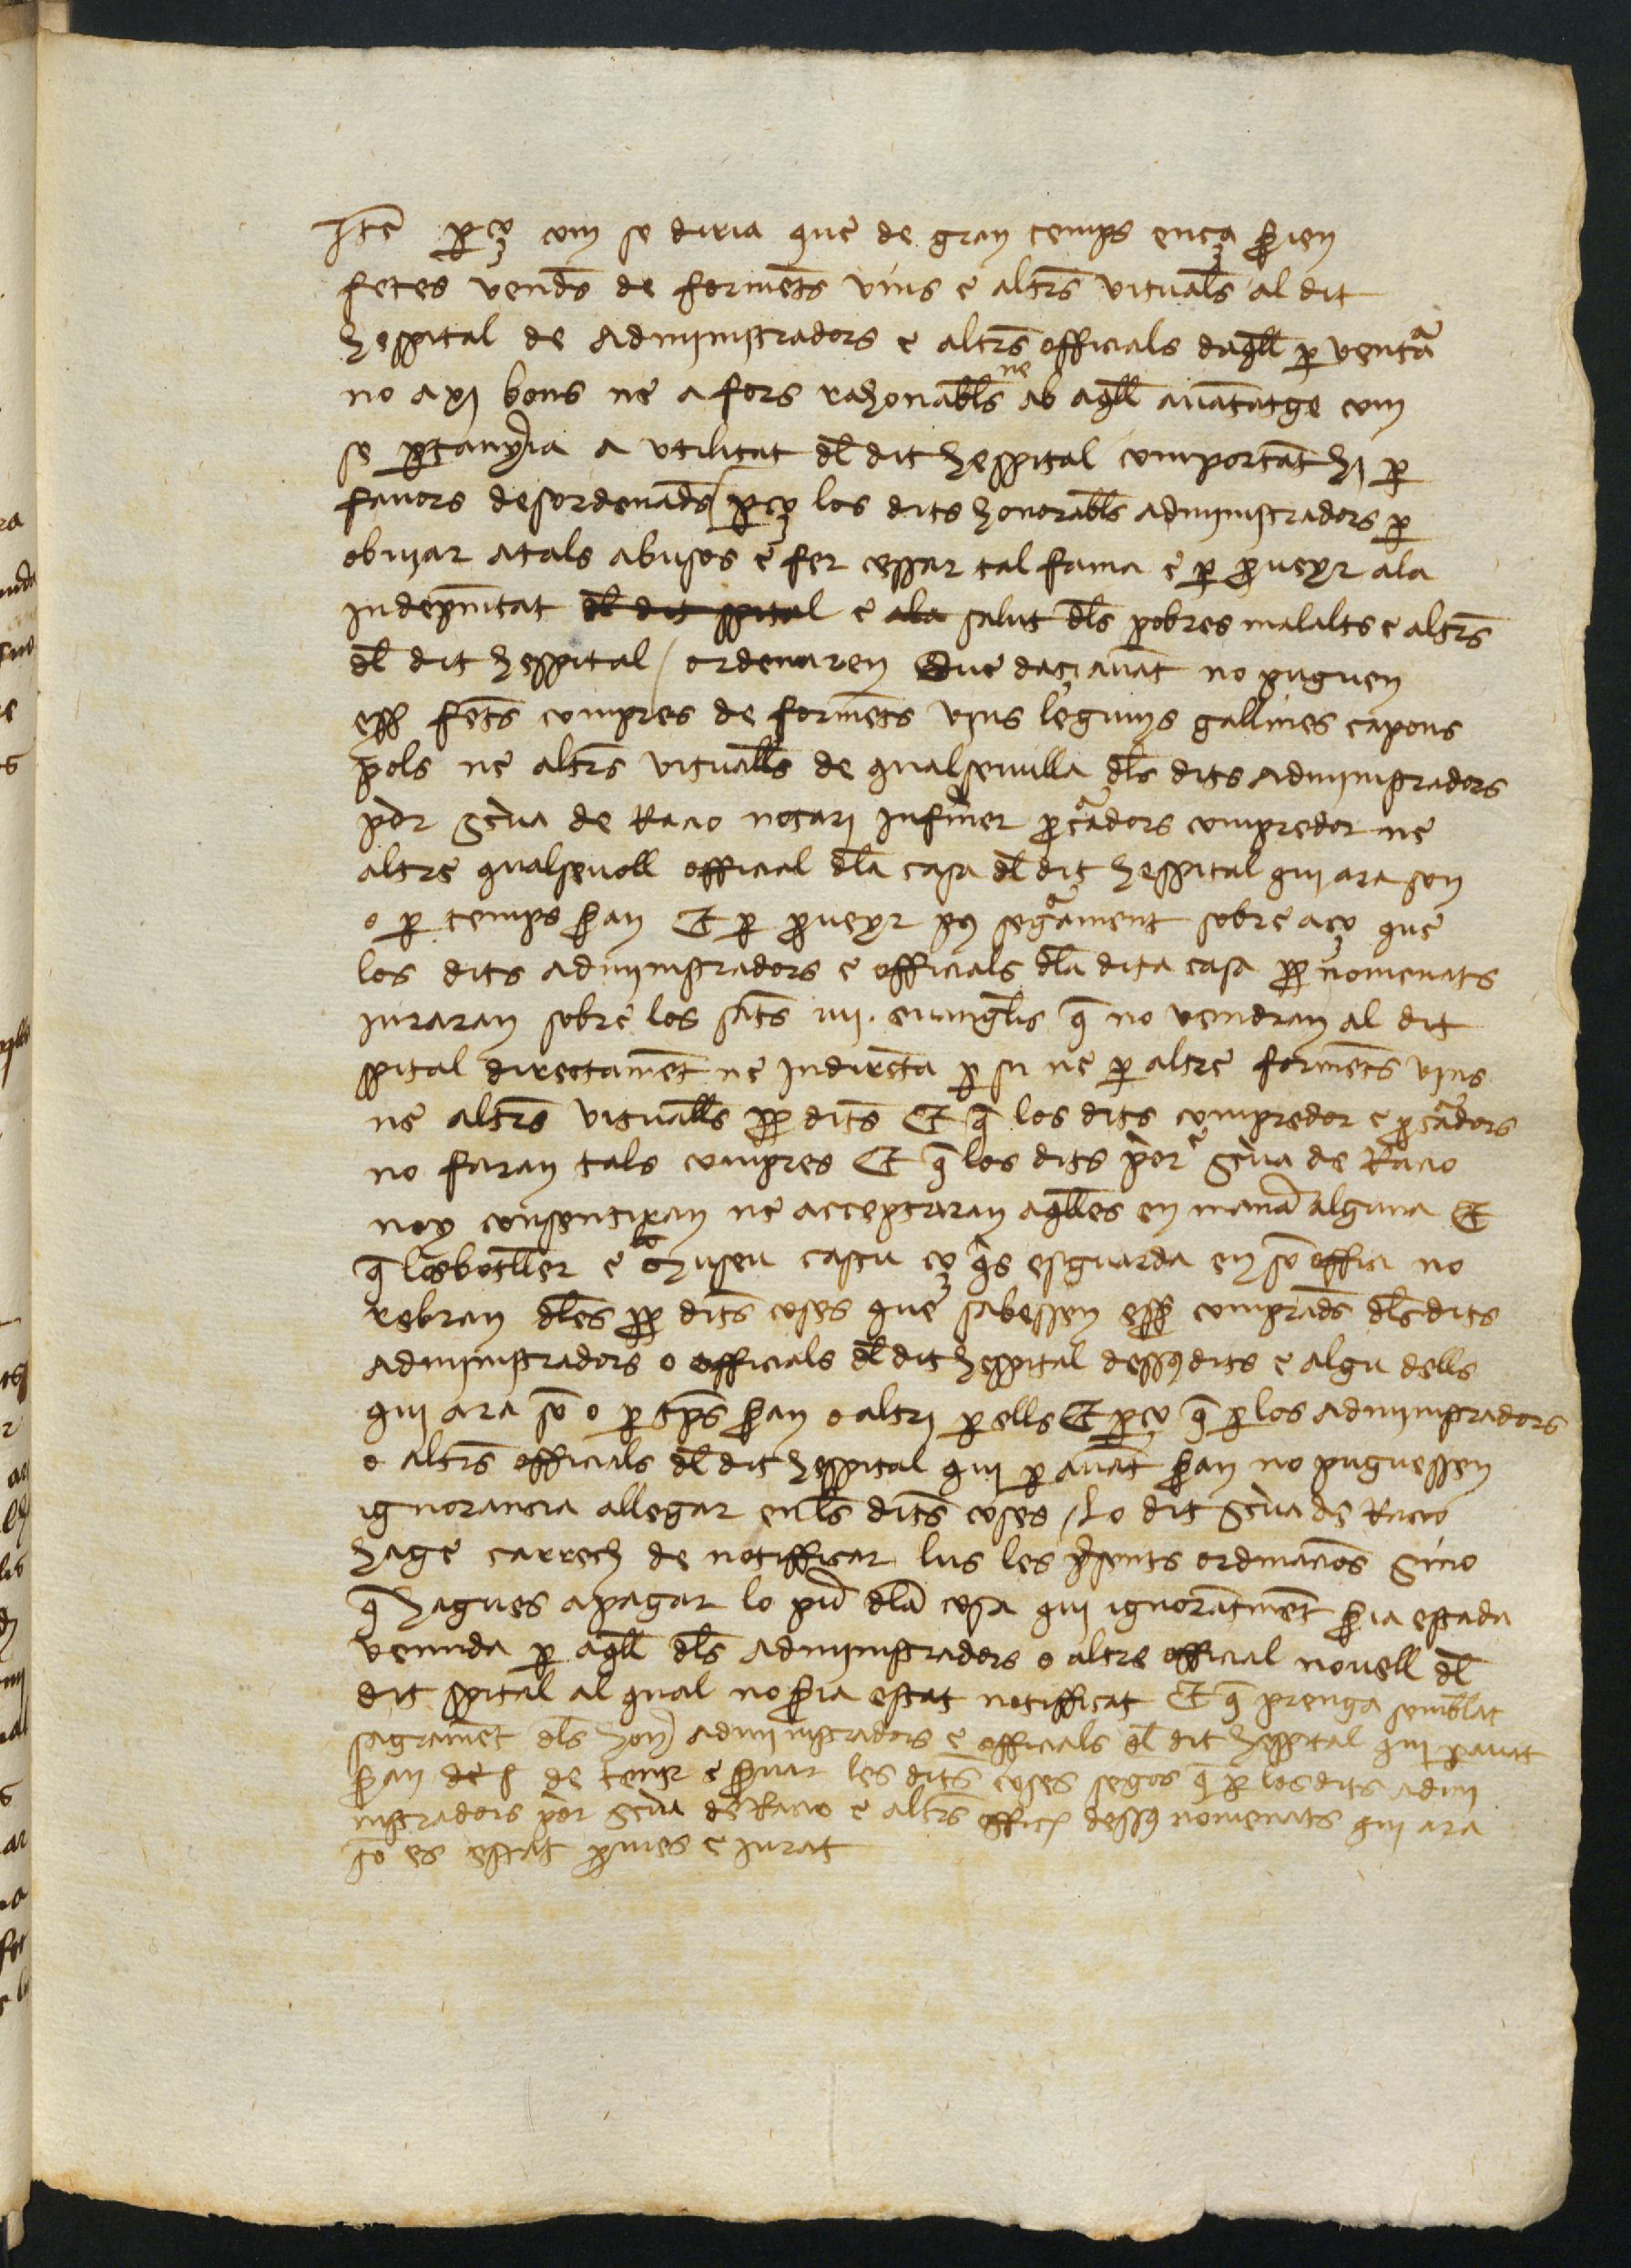 Itē ꝑço com se diria que de gran temps ença ẜien
fetes vendēs de formēts vins e altr̄s vituals̄ al dit
hespital de administradors e altr̄s officials daq̄ll ꝑ ventᵃ
no axi bons ne a fors rahonabl̄s ne ab aq̄ll auātatge com
se ꝑtanyia a vtilitat dl̄ dit hespital comportāt hi ꝑ
fauors desordenad̄s / ꝑço los dits honorabl̄s administradors ꝑ
obuiar atals abusos e fer cessar tal fama e ꝑ ꝓueyr ala
indepnitat dl̄ dit spital e ala salut dl̄s pobres malalts e altr̄s
dl̄ dit hespital / ordenaren Que daciauāt no puguen
ess̄ fet̄s compres de formēts vins legums gallines capons
pols ne altr̄s vituall̄s de qualseuulla dl̄s dits administradors
p̄or sc̄ua de Racio notari infm̄er ꝓcᵃdors comprador ne
altre qualseuoll official dl̄a casa dl̄ dit hespital qui ara son
o ꝑ temps ẜan Et ꝑ ꝓueyr pꝰ segᵃament sobre aço que
los dits administradors e officials dl̄a dita casa ꝓꝑ nomenats
juraran sobre los sāts iiij. euangl̄is q̄ no vendran al dit
spital directamēt ne indirectā ꝑ si ne ꝑ altre formēts vins
ne altr̄s vituall̄s ꝓꝑ dit̄s Et q̄ los dits comprador e ꝓcᵃdors
no faran tals compres Et q̄ los dits p̄or e sc̄ua de Racio
noy consentiran ne acceptaran aq̄lles en manā alguna Et
q̄ lo botll̄er e lo cᵃ huseu cascu ço q̄s esguarda en sō offici no
rebran dl̄es ꝓꝑ dit̄s coses que sabessen ess̄ comprad̄s dl̄s dits
administradors o officials dl̄ dit hespital dessꝰdits e algu dells
qui ara sō o ꝑ tp̄s ẜan o altri ꝑ ells Et ꝑço q̄ ꝑ los administradors
o altr̄s officials dl̄ dit hespital qui ꝑ auāt ẜan no puguessen
ignorancia allegar enl̄s dit̄s coses / Lo dit sc̄ua de Racio
hage carrech de notifficar lus les p̄sents ordinacion̄s Sino
q̄ hagues apagar lo p̄u dl̄a cosa qui ignorātmēt ẜia estada
venuda ꝑ aq̄ll dl̄s administradors o altre official nouell dl̄
dit spital al qual no ẜia estat notifficat Et q̄ prenga semblāt
sagramēt dl̄s hon̄ administradors e officials dl̄ dit hespital qui ꝑauāt
ẜan de s de tenir e ẜuar les dit̄s coses segos q̄ ꝑ los dits admi
nistradors p̄or sc̄ua de Racio e altr̄s offic̄s dessꝰ nomenats qui ara
sō es estat ꝓmes e jurat